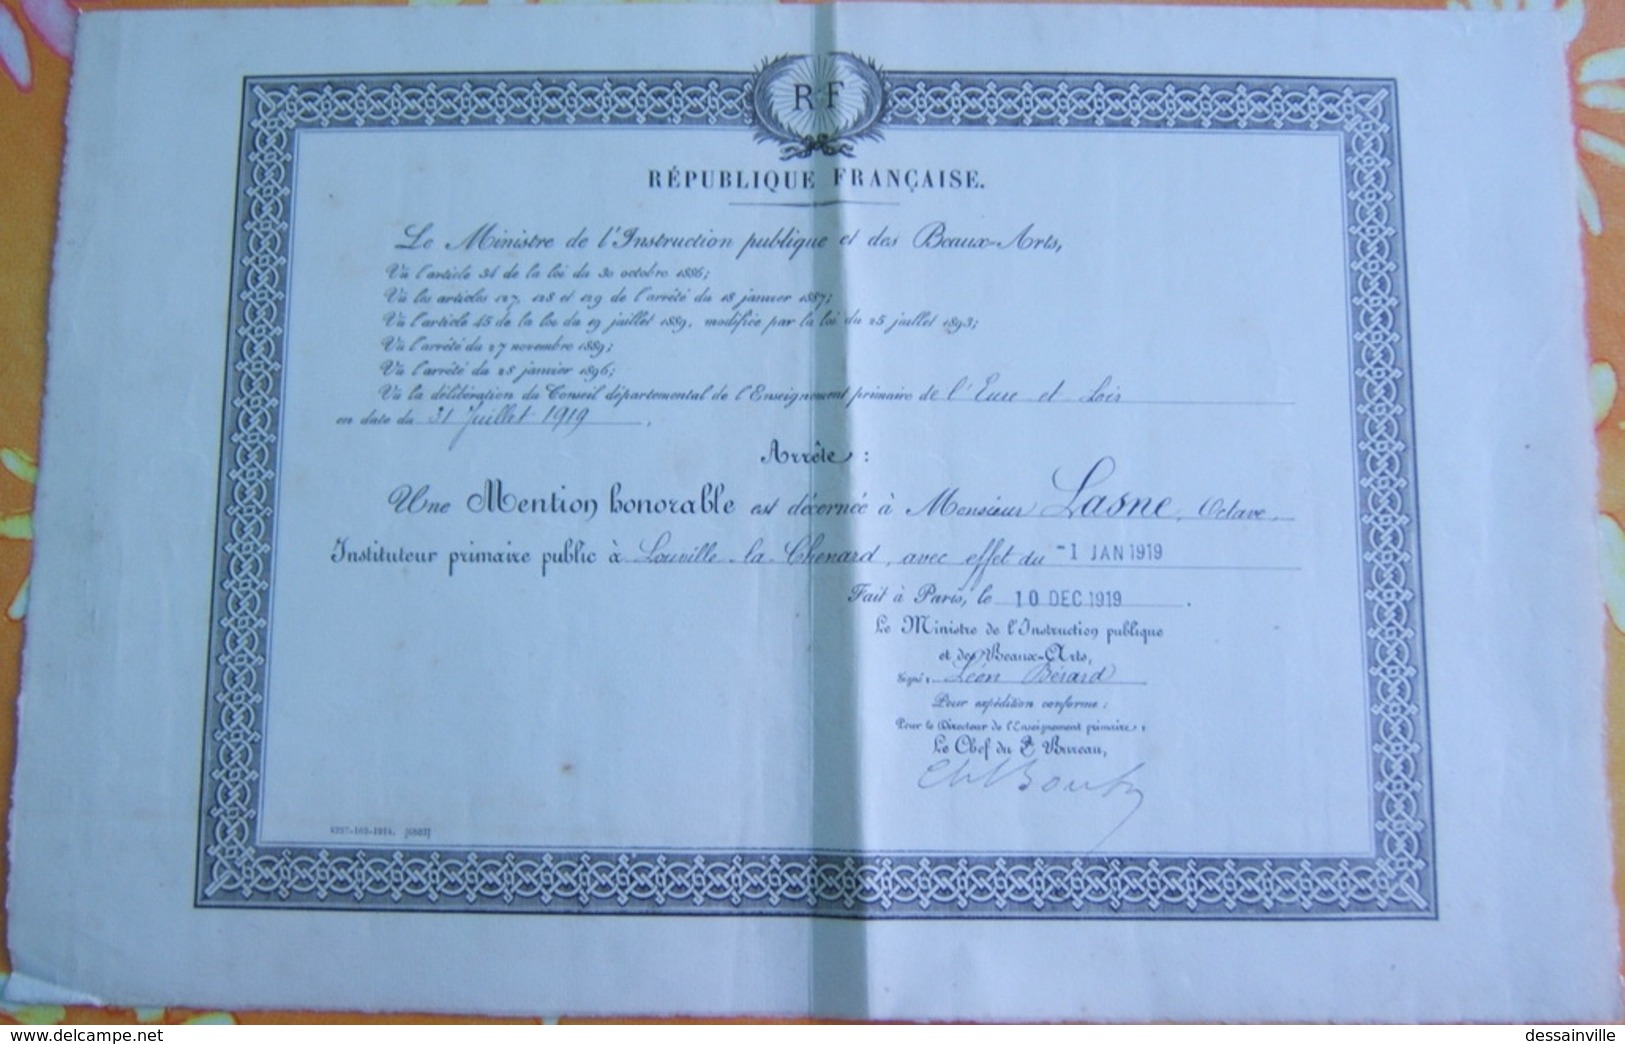 RF
RÉPUBLIQUE FRANÇAISE.
Le Ministre de l'Instruction publique et des Beaux-Arts,
Vu l'article 34 de la loi du 30 octobre 1886;
Vu les articles 127, 128 et 129 de l'arrêté du 18 janvier 1887;
Vu l'article 45 de la loi du 19 juillet 1889, modifiée par la loi du 25 juillet 1893;
Vu l'arrêté du 27 novembre 1889;
Vu l'arrêté du 28 janvier 1896;
Vu la délibération du Conseil départemental de l'Enseignement primaire de l'Eure et Loir
en date du 31 Juillet 1919.
Arrête:
Une Mention honorable est décernée à Monsieur Lasne, Octave,
Instituteur primaire public à Louville-la-Chenard, avec effet du -1 JAN 1919
Fait à Paris, le 10 DEC 1919.
Le Ministre de l'Instruction publique
et des Beaux-Arts,
Signé: Léon Bérard
Pour expédition conforme:
Pour le Directeur de l'Enseignement primaire:
Le Chef du Bureau,
delcampe.net
dessainville